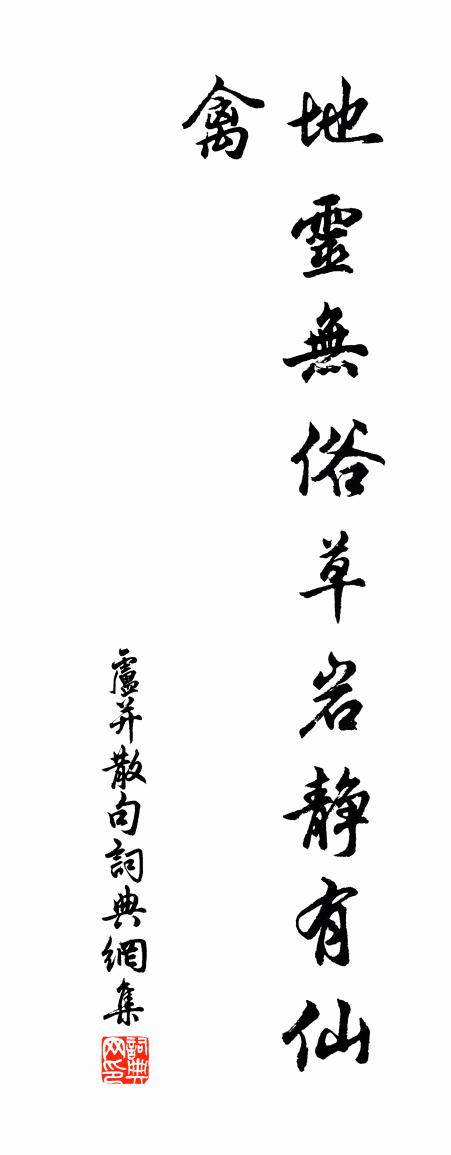 地靈無俗草岩靜有仙
禽
盧并散句詞典網集
詞典网印